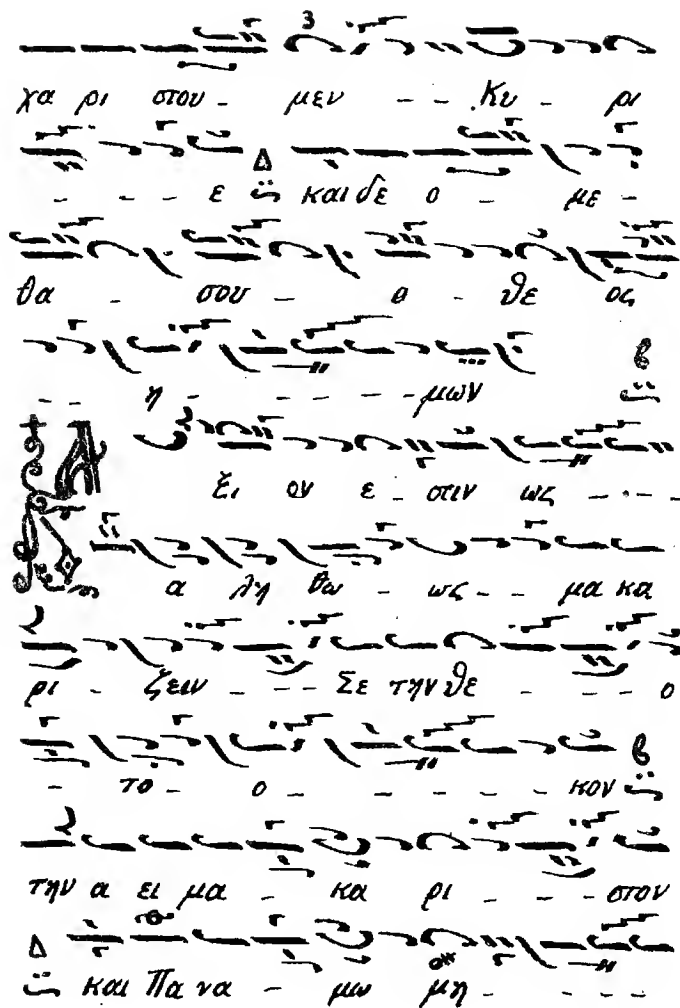 χα ρι στου - μεν - - Κυ - ρι
- - - - ε Δ και δε ο - με -
θα - σου - ο - θε ος
- - η - - - - - - μων β
Ἀ ξι ον ε - στιν ως - - - -
α λη θω - ως - - μα κα
ρι - ζειν - - - Σε την θε - - - ο
- το - ο - - - - - - κον β
την α ει μα - κα ρι - - - στον
Δ και Πα να - μω μη - - - - -